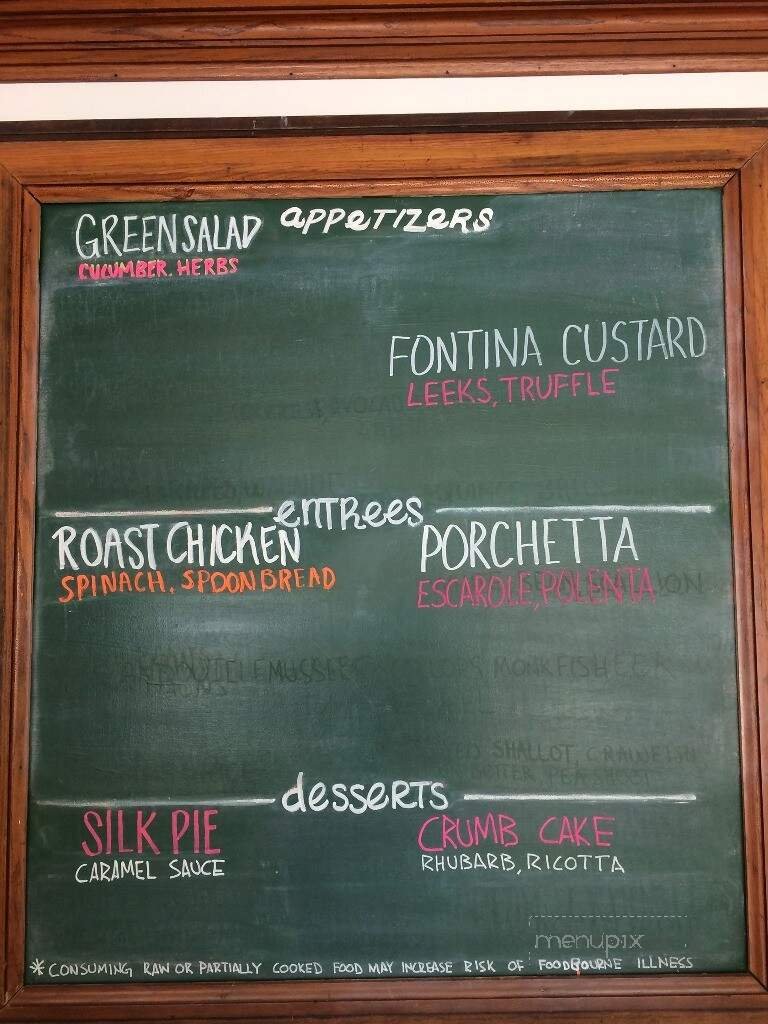 APPETIZERS
GREEN SALAD
CUCUMBER. HERBS
FONTINA CUSTARD
LEEKS, TRUFFLE
ENTREES
ROAST CHICKEN
SPINACH, SPOONBREAD
PORCHETTA
ESCAROLE, POLENTA
MUSSEL
MONKFISH
SHALLOT, CRAWFISH
DESSERTS
SILK PIE
CARAMEL SAUCE
CRUMB CAKE
RHUBARB, RICOTTA
menupix
* CONSUMING RAW OR PARTIALLY COOKED FOOD MAY INCREASE RISK OF FOODBOURNE ILLNESS